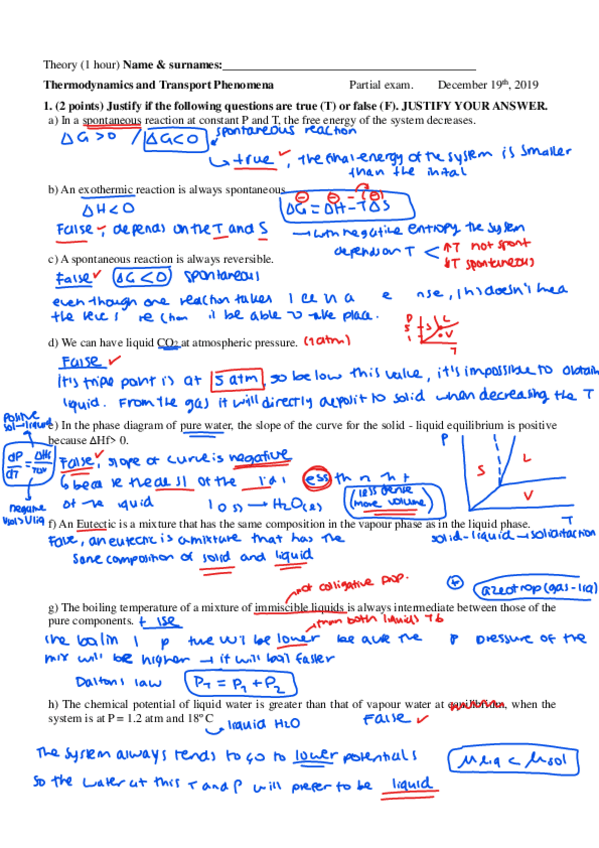 Theory (1 hour) Name & surnames:
Thermodynamics and Transport Phenomena Partial exam. December 19th, 2019
1. (2 points) Justify if the following questions are true (T) or false (F). JUSTIFY YOUR ANSWER.
a) In a spontaneous reaction at constant P and T, the free energy of the system decreases.
ΔG>0 / ΔG<0 spontaneous reaction
↳ true ✓, the final energy of the system is smaller
than the inital
b) An exothermic reaction is always spontaneous
ΔH<0 ΔG = ΔH - TΔS
False ✓, depends on the T and S → with negative entropy the system
depends on T < ↑T not spont
↓T spontaneous
c) A spontaneous reaction is always reversible.
False ✓ ΔG<0 spontaneous
even though one reaction takes
be able to take place.
d) We can have liquid CO2 at atmospheric pressure. (1atm)
P
S L
V
T
False ✓
It's triple point is at 5 atm, so below this value, it's impossible to obtain
liquid. From the gas it will directly deposit to solid when decreasing the T
positive
e) In the phase diagram of pure water, the slope of the curve for the solid - liquid equilibrium is positive
because ΔHf> 0.
False, slope of curve is negative
less
(less dense
more volume)
→ H2O(s)
negative
P
S L
V
T
f) An Eutectic is a mixture that has the same composition in the vapour phase as in the liquid phase.
False, an eutectic is a mixture that has the
same composition of solid and liquid
solid-liquid →
not colligative prop.
azeotrop (gas-liq)
g) The boiling temperature of a mixture of immiscible liquids is always intermediate between those of the
pure components.
than both liquids Tb
lower
pressure of the
mix will be higher → it will boil faster
Dalton's law PT = P1 + P2
h) The chemical potential of liquid water is greater than that of vapour water at equilibrium, when the
system is at P= 1.2 atm and 18º C
↳ liquid H2O False ✓
The system always tends to go to lower potentials
μliq < μsol
So the water at this T and P will prefer to be liquid